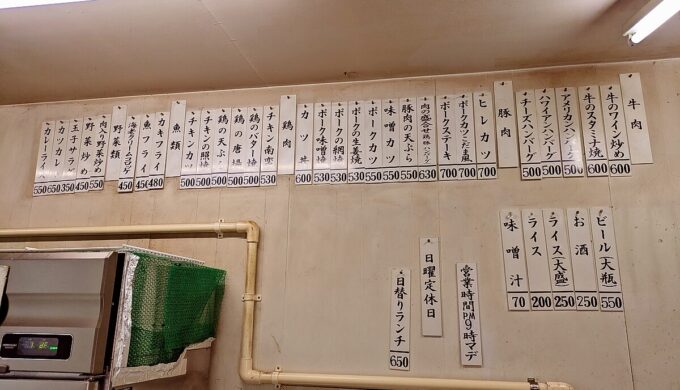 牛肉
牛のワイン炒め 600
牛のスタミナ焼 600
アメリカンハンバーグ 500
ハワイアンハンバーグ 500
チーズハンバーグ 500
豚肉
ヒレカツ 700
ポークカツごだま風 700
ポークステーキ 700
630
豚肉の天ぷら 550
味噌カツ 550
ポークカツ 550
ポークの生姜焼 530
ポークの網焼 530
ポーク味噌焼 530
カツ丼 600
鶏肉
チキン南蛮 530
鶏のバター焼 500
鶏の唐揚 500
鶏の天ぷら 500
チキンの照焼 500
チキンカツ 500
魚類
カキフライ 480
魚フライ 450
海老クリームコロッケ 450
野菜類
肉入り野菜炒め 550
野菜炒め 450
玉子サラダ 350
カツカレー 650
カレーライス 550
ビール(大瓶) 550
お酒 250
ライス(大盛) 250
ライス 200
味噌汁 70
営業時間PM9時マデ
日曜定休日
日替りランチ 650